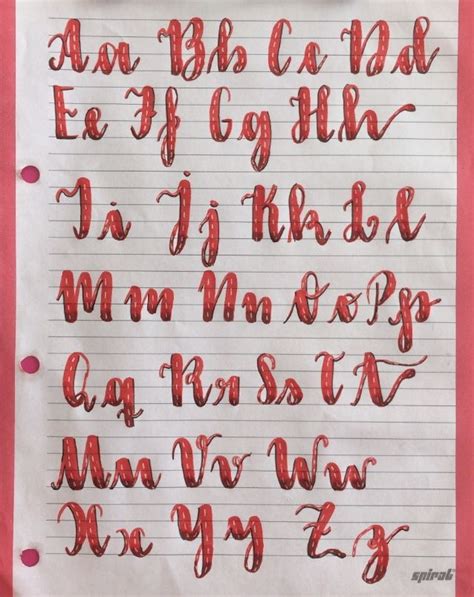 Aa Bb Cc Dd
Ee Ff Gg Hh
Ii Jj Kk Ll
Mm Nn Oo Pp
Qq Rr Ss Tt
Uu Vv Ww
Xx Yy Zz
spiral